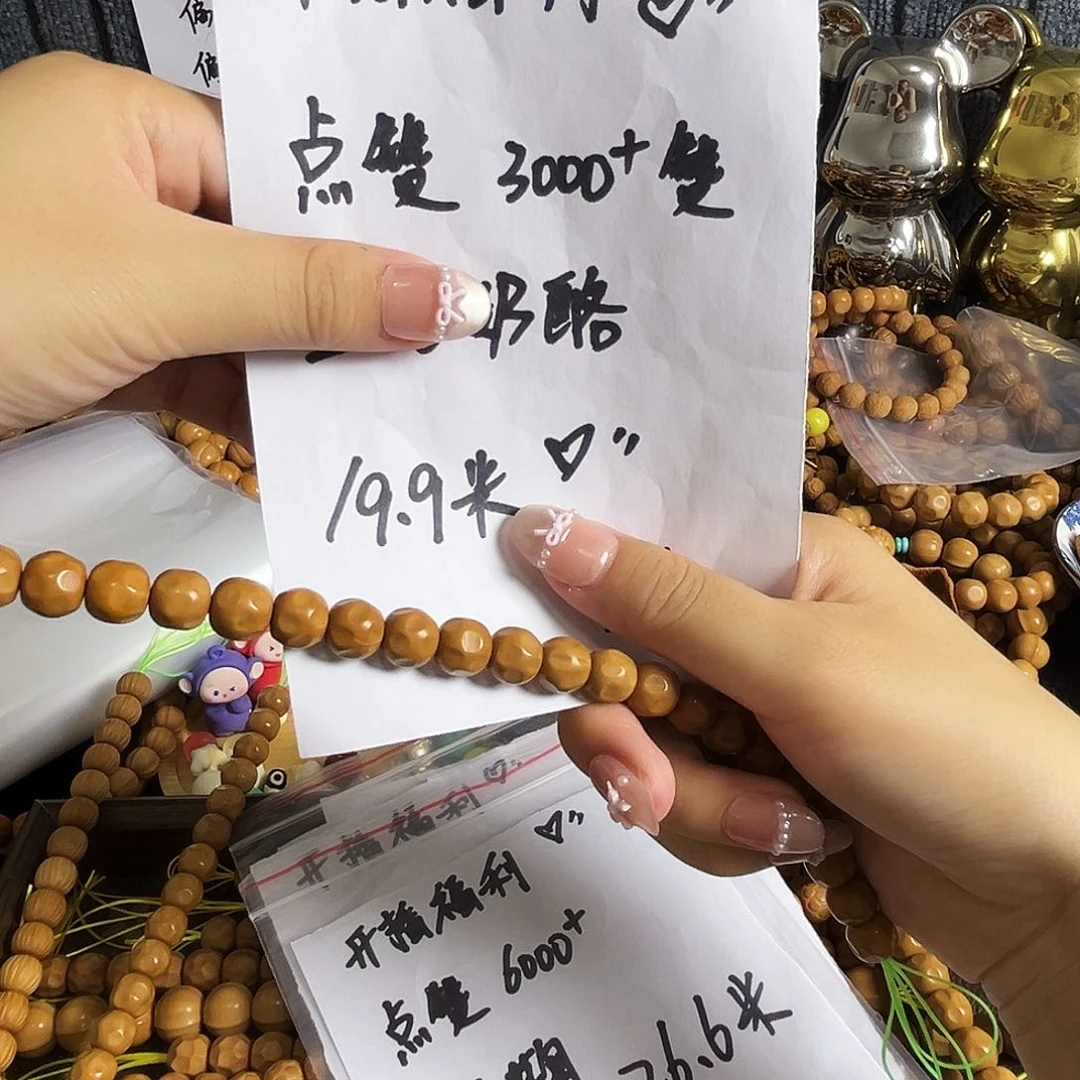 点雙 3000+雙
奶酪
19.9米
开播福利
开播福利
点雙 6000+
26.6米